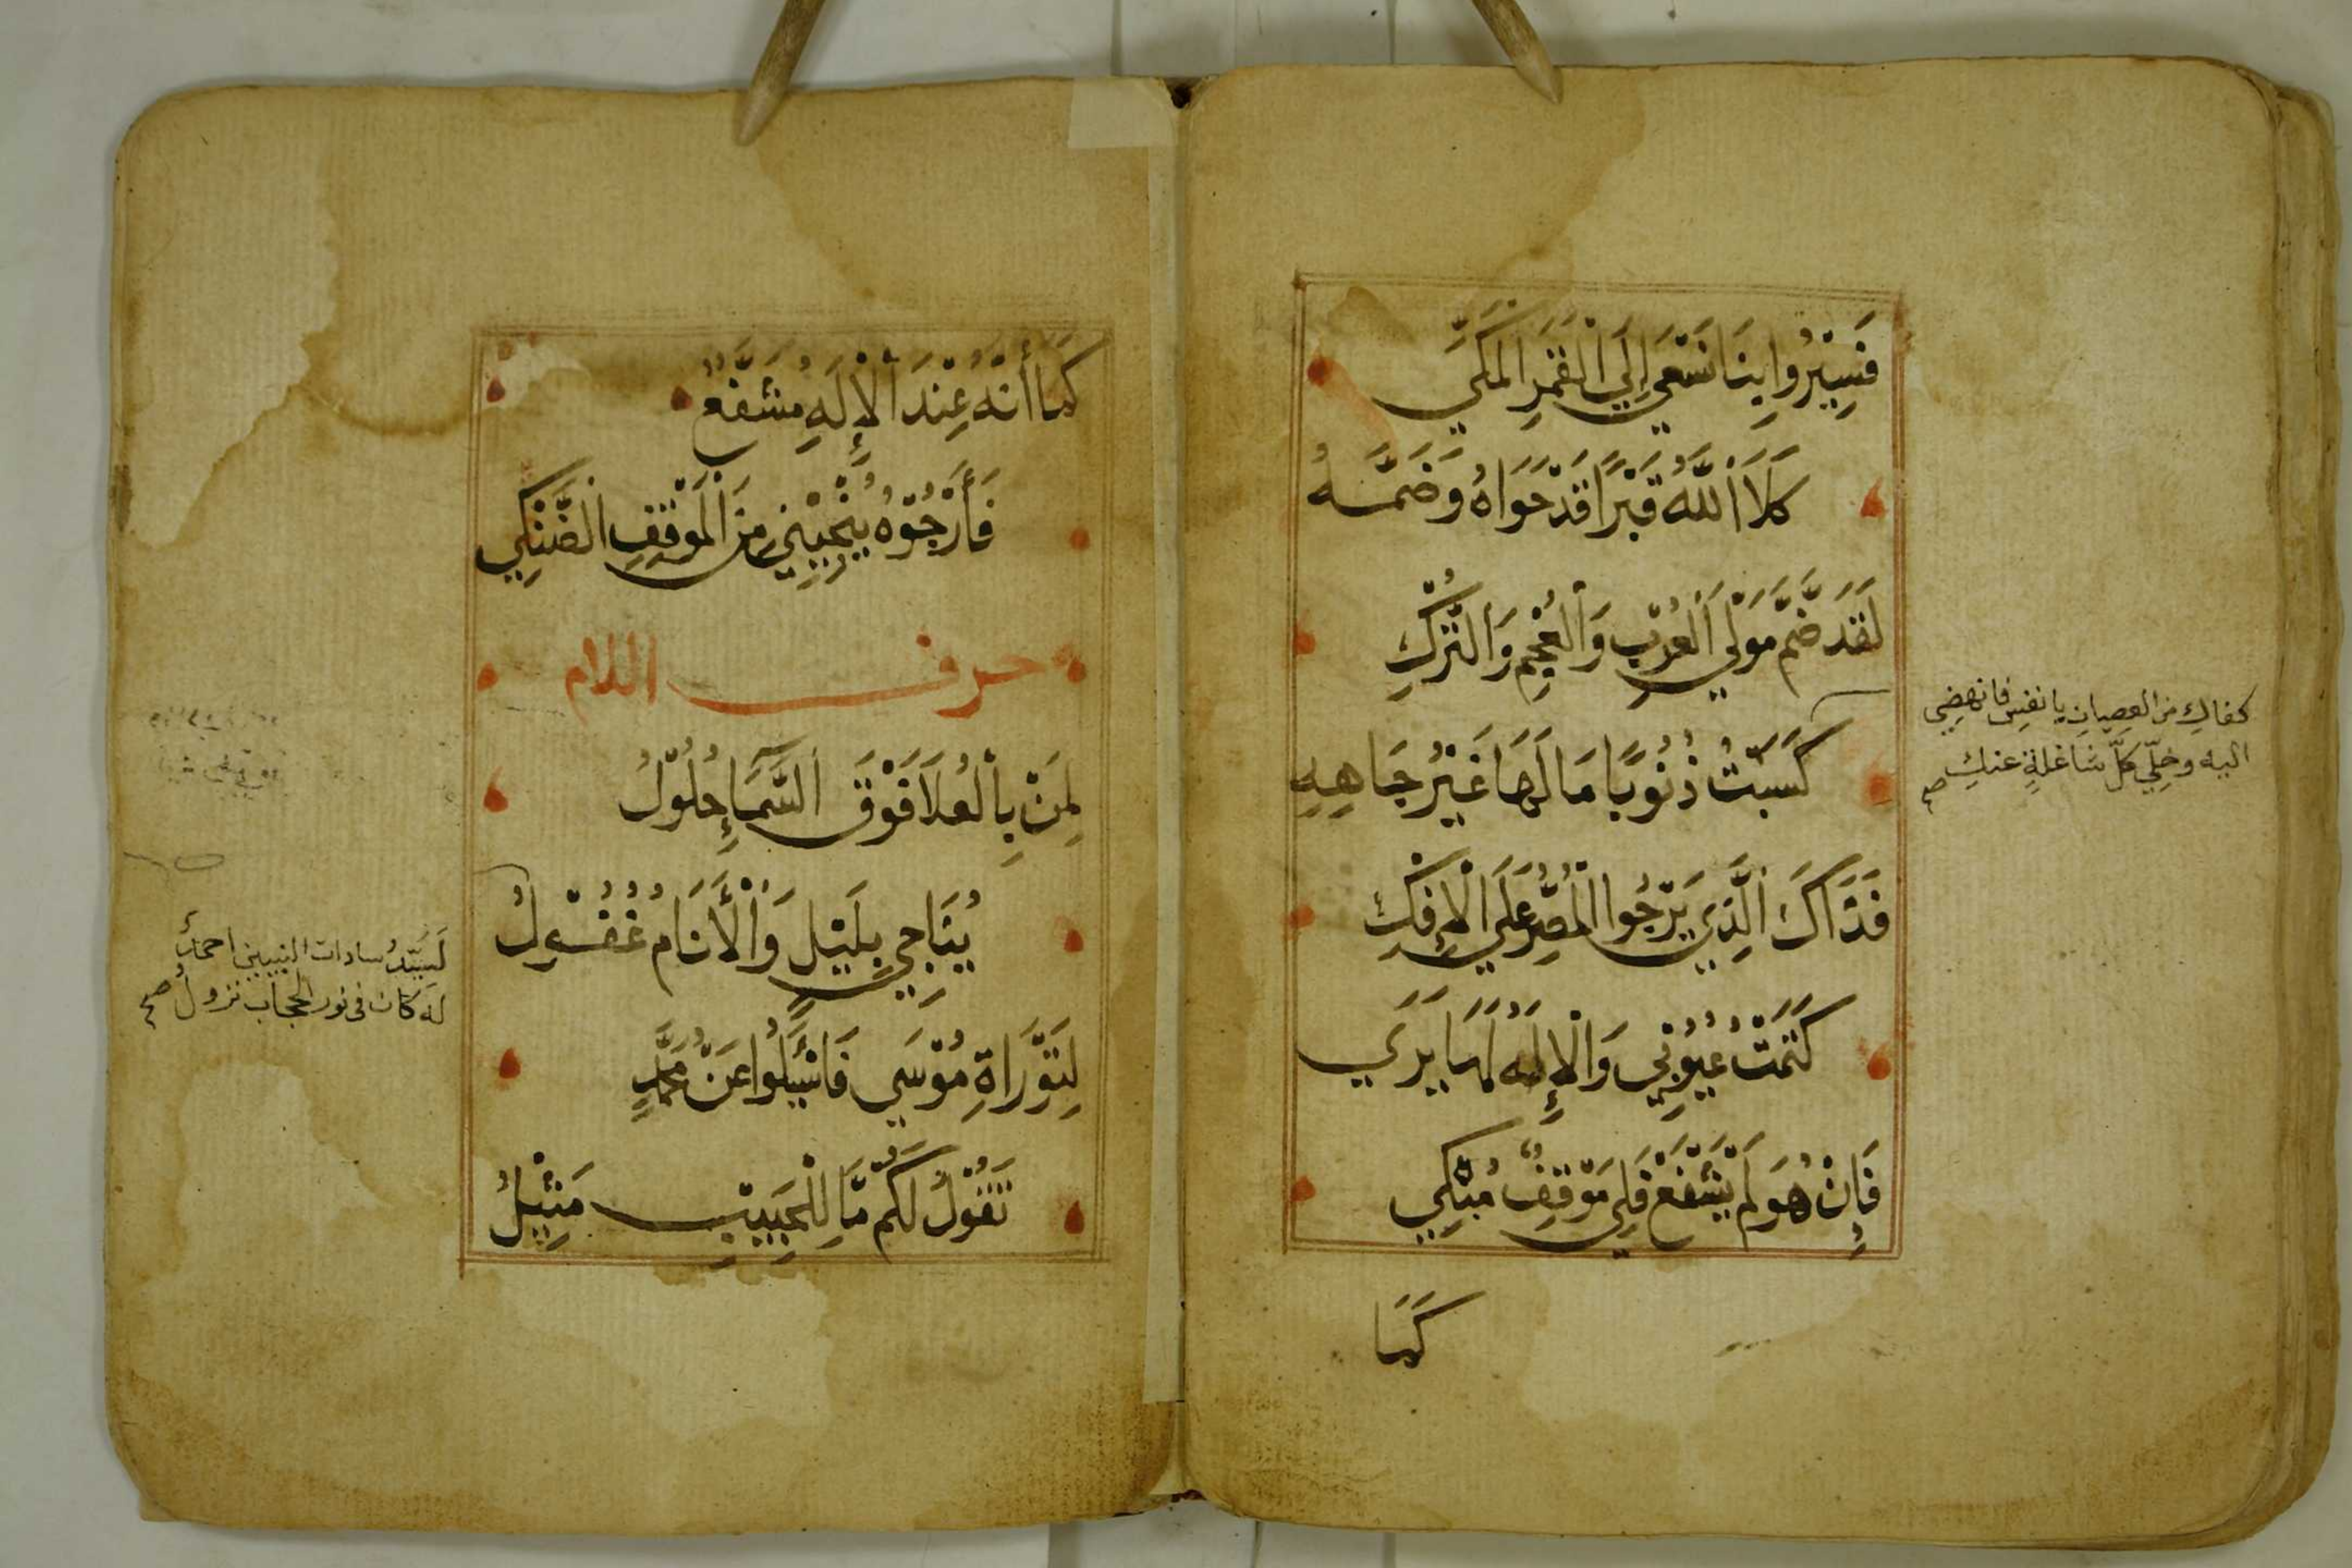 فَسِيْرُوا بِنَا نَسْعَى إِلَى الْقَمَرِ الْمَكِّي
كَلَا اللَّهُ قَبْرًا قَدْ حَوَاهُ وَضَمَّهُ
لَقَدْ ضَمَّ مَوْلَى الْعُرْبِ وَالْعُجْمِ وَالتُّرْكِ
كفاكِ من العصيان يا نفس فانهضي
اليه وخلّي كلّ شاغلةٍ عنكِ صح
كَسَبْتُ ذُنُوبًا مَا لَهَا غَيْرُ جَاهِهِ
فَذَاكَ الَّذِي يَرْجُوا الْمُصِرُّ عَلَى الْإِفْكِ
كَتَمْتُ عُيُوبِي وَالْإِلَهُ لَهَا يَرَى
فَإِنْ هُوَ لَمْ يَشْفَعْ فَلِي مَوْقِفٌ مُبْكِي
كَمَا
كَمَا أَنَّهُ عِنْدَ الْإِلَهِ مُشَفَّعٌ
فَأَرْجُوْهُ يُنْجِيْنِي مِنَ الْمَوْقِفِ الضَّنْكِي
حرف اللام
لِمَنْ بِالْعُلَا فَوْقَ السَّمَاءِ حُلُوْلُ
يُنَاجِي بِلَيْلٍ وَالْأَنَامُ غُفُوْلُ
لَسَيّدُ سادات النبيين احمدٌ
له كان فى نور الحجاب نزولُ صح
لِتَوْرَاةِ مُوْسَى فَاسْئَلُوا عَنْ مُحَمَّدٍ
تَقُوْلُ لَكُمْ مَا لِلْحَبِيْبِ مَثِيْلُ